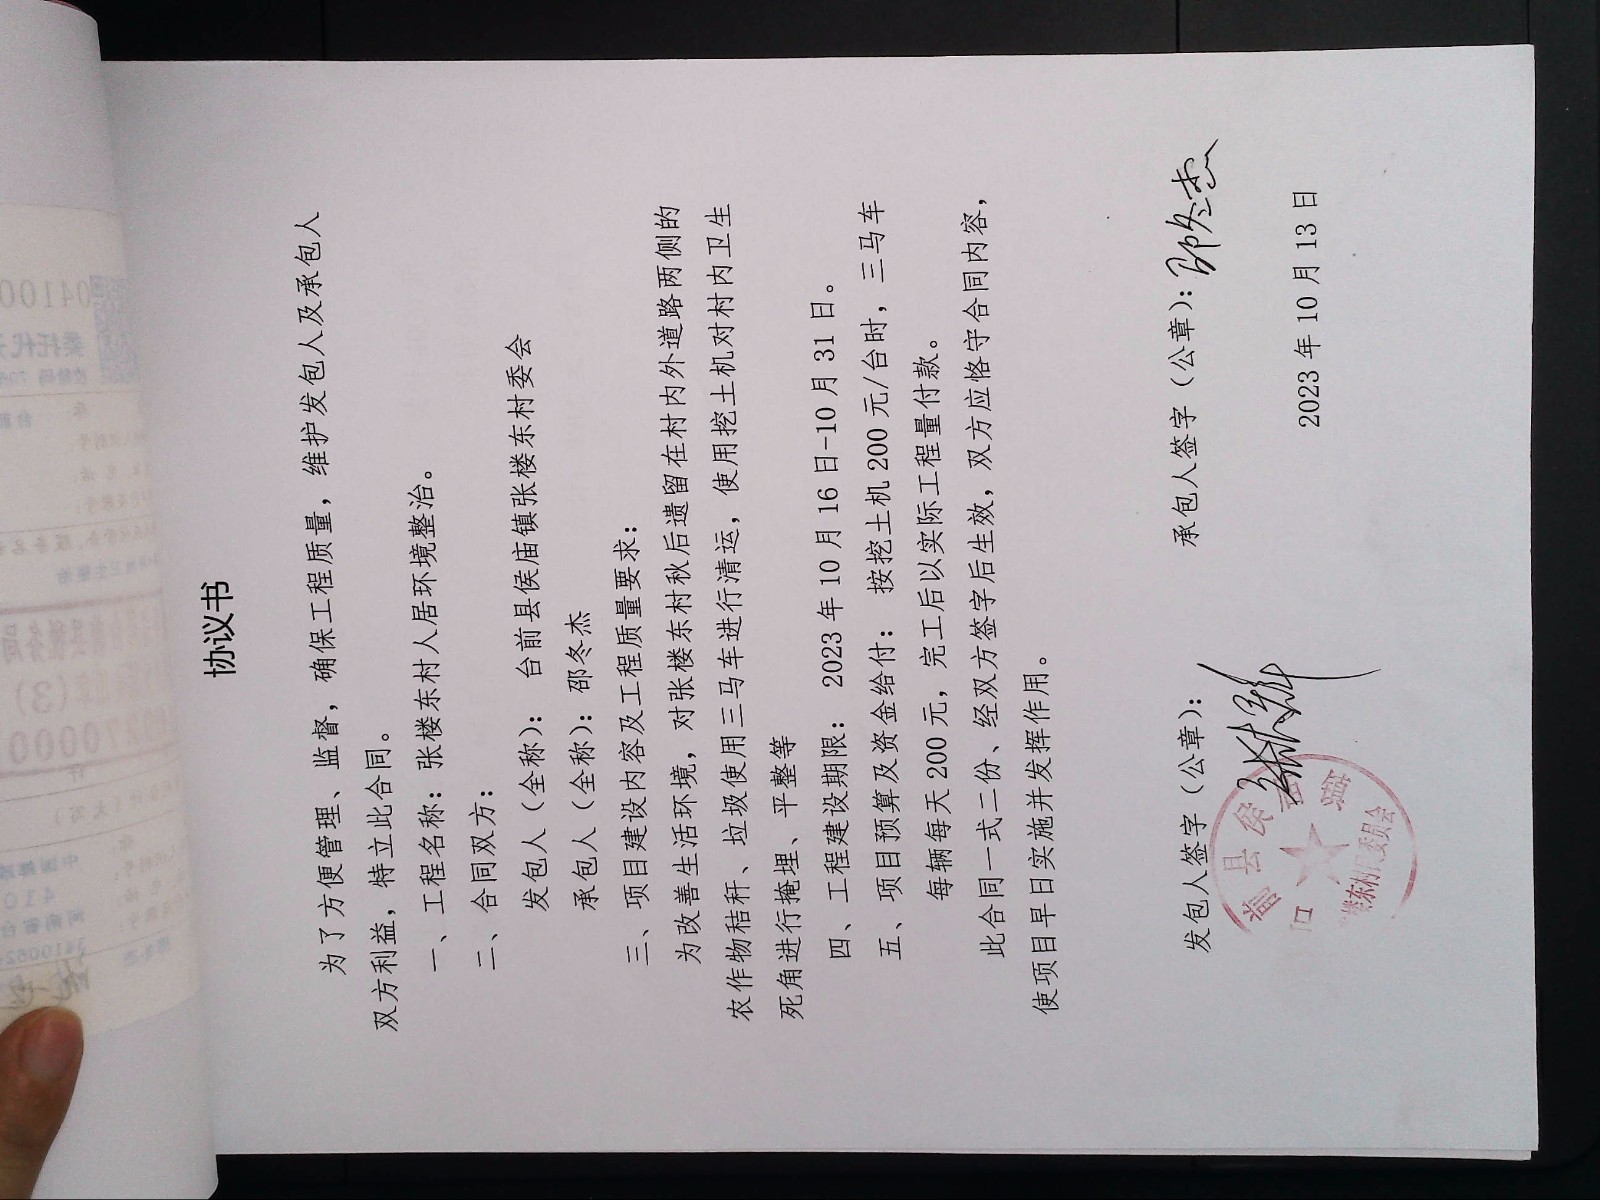 协议书
为了方便管理、监督，确保工程质量，维护发包人及承包人
双方利益，特立此合同。
一、工程名称：张楼东村人居环境整治。
二、合同双方：
发包人（全称）： 台前县侯庙镇张楼东村委会
承包人（全称）：邵冬杰
三、项目建设内容及工程质量要求：
为改善生活环境，对张楼东村秋后遗留在村内外道路两侧的
农作物秸秆、垃圾使用三马车进行清运，使用挖土机对村内卫生
死角进行掩埋、平整等
四、工程建设期限： 2023 年 10 月 16 日-10 月 31 日。
五、项目预算及资金给付： 按挖土机 200 元/台时，三马车
每辆每天 200 元，完工后以实际工程量付款。
此合同一式二份、经双方签字后生效，双方应恪守合同内容，
使项目早日实施并发挥作用。
发包人签字（公章）： 承包人签字（公章）：邵冬杰
前县侯庙镇
楼东村村民委员会
2023 年 10 月 13 日